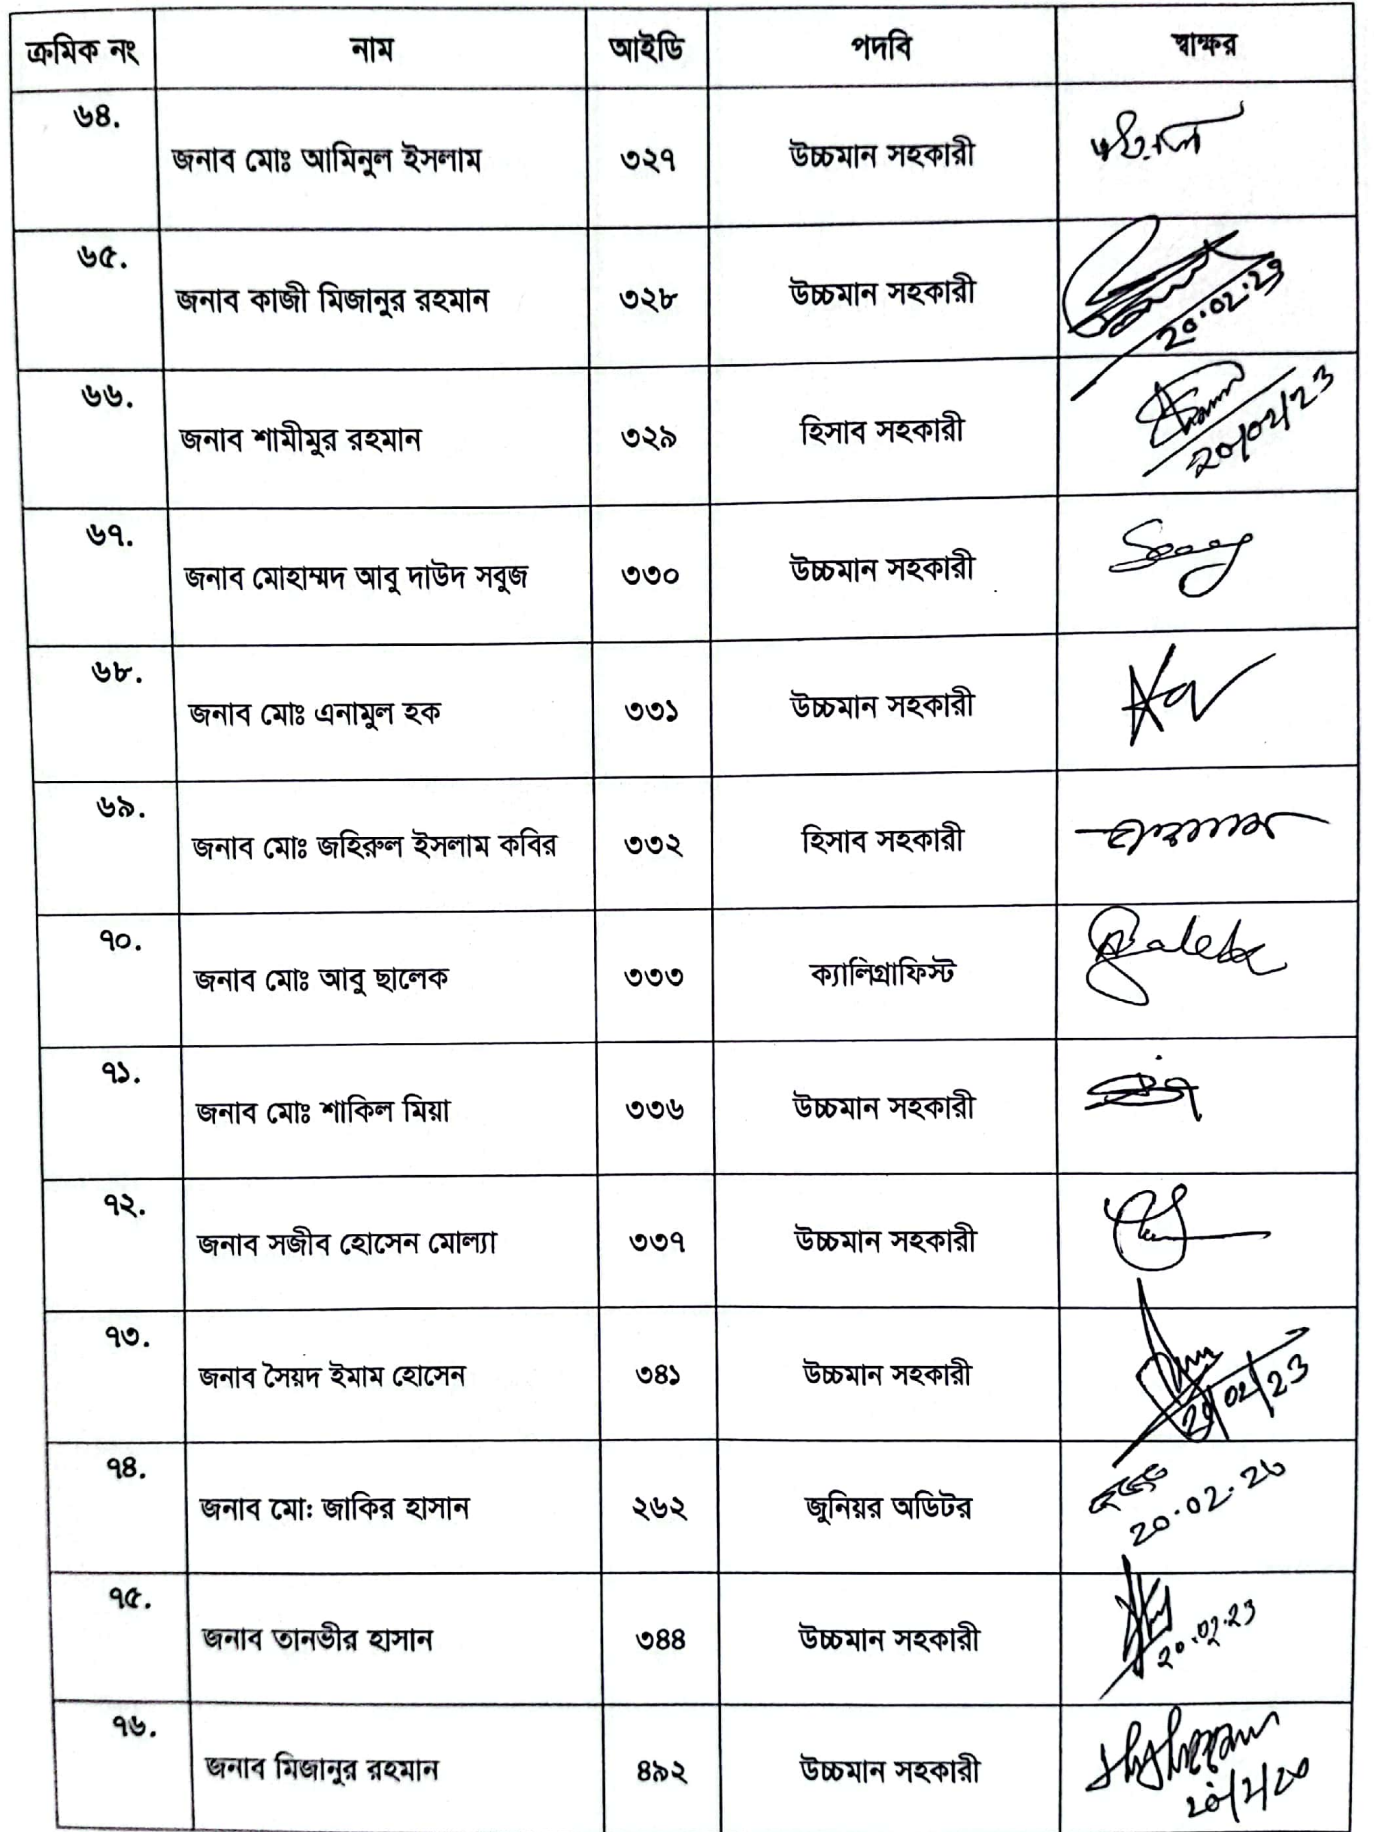 ক্রমিক নং নাম আইডি পদবি স্বাক্ষর
৬৪. জনাব মোঃ আমিনুল ইসলাম ৩২৭ উচ্চমান সহকারী
৬৫. জনাব কাজী মিজানুর রহমান ৩২৮ উচ্চমান সহকারী
20.02.23
৬৬. জনাব শামীমুর রহমান ৩২৯ হিসাব সহকারী
20/02/23
৬৭. জনাব মোহাম্মদ আবু দাউদ সবুজ ৩৩০ উচ্চমান সহকারী
৬৮. জনাব মোঃ এনামুল হক ৩৩১ উচ্চমান সহকারী
৬৯. জনাব মোঃ জহিরুল ইসলাম কবির ৩৩২ হিসাব সহকারী
৭০. জনাব মোঃ আবু ছালেক ৩৩৩ ক্যালিগ্রাফিস্ট
৭১. জনাব মোঃ শাকিল মিয়া ৩৩৬ উচ্চমান সহকারী
৭২. জনাব সজীব হোসেন মোল্যা ৩৩৭ উচ্চমান সহকারী
৭৩. জনাব সৈয়দ ইমাম হোসেন ৩৪১ উচ্চমান সহকারী
৭৪. জনাব মো: জাকির হাসান ২৬২ জুনিয়র অডিটর
৭৫. জনাব তানভীর হাসান ৩৪৪ উচ্চমান সহকারী
২০.০২.২৩
৭৬. জনাব মিজানুর রহমান ৪৯২ উচ্চমান সহকারী